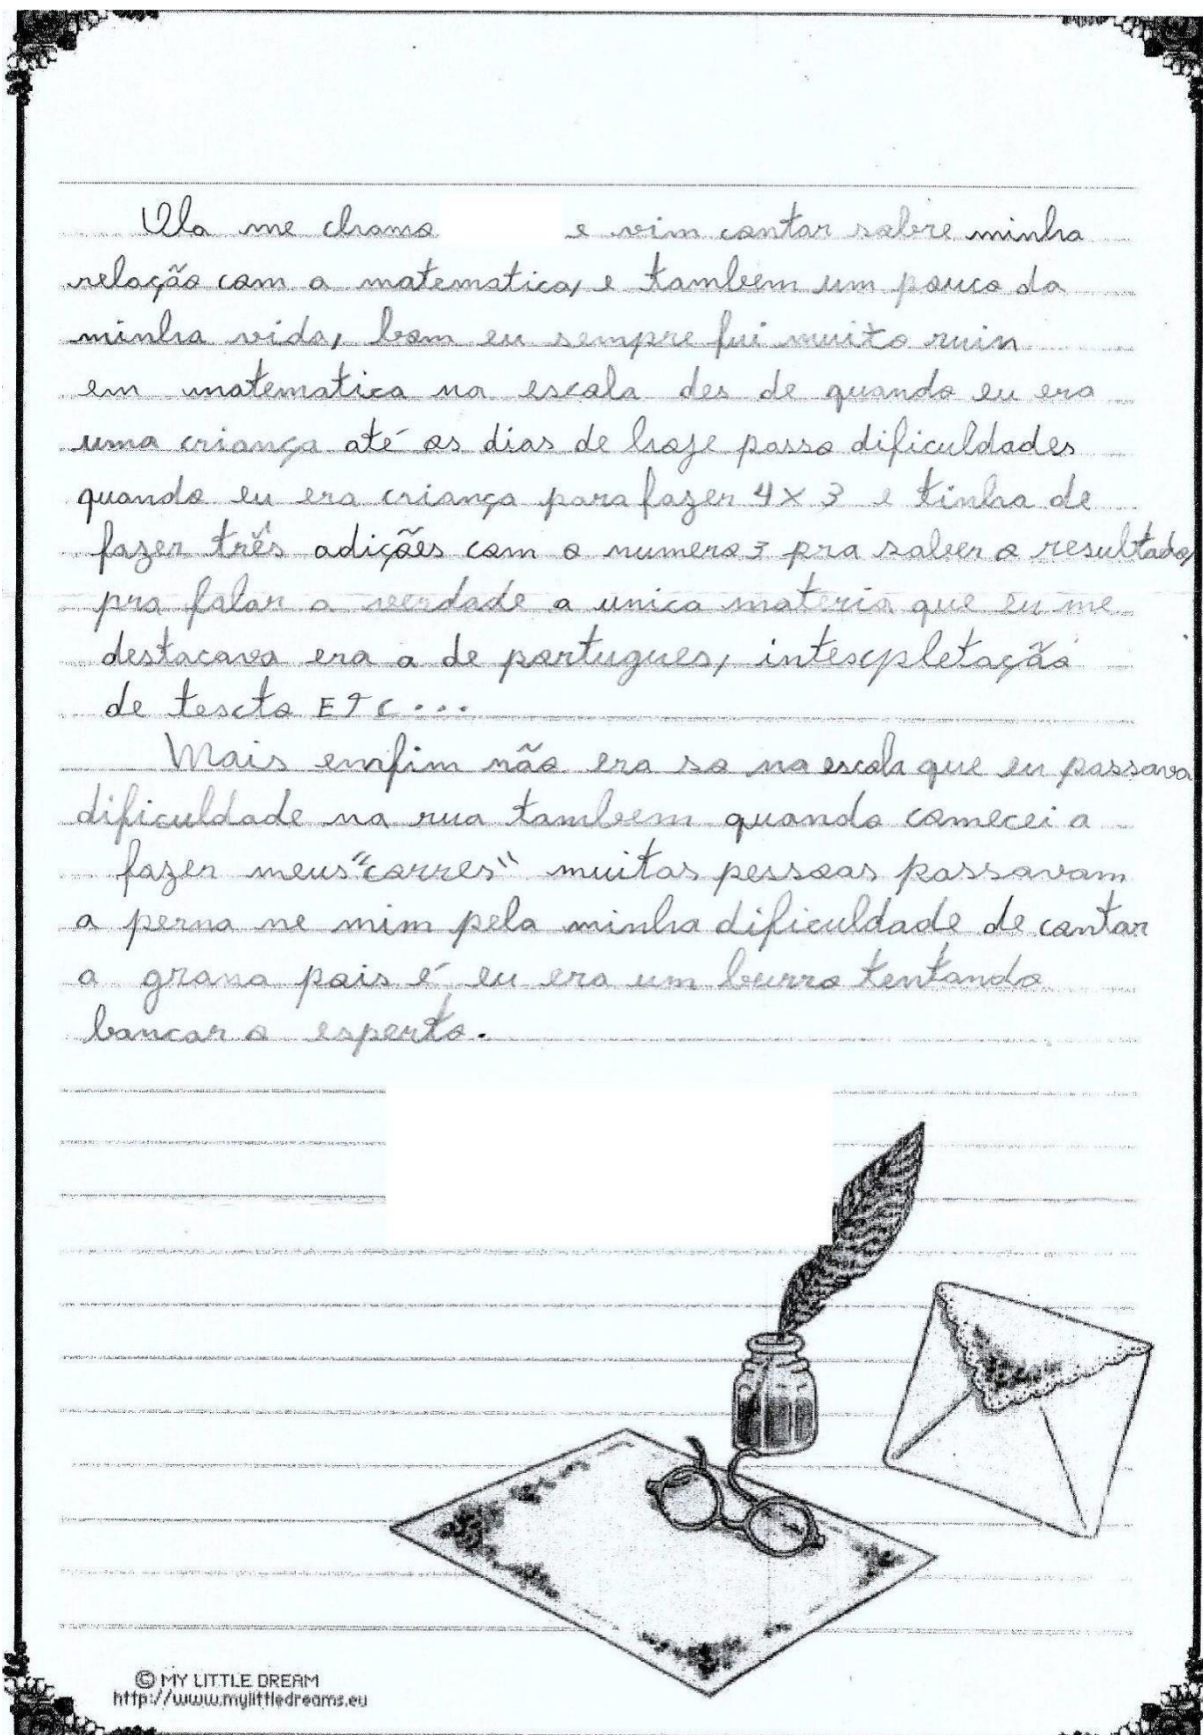 Ola me chamo e vim contar sobre minha
relação com a matematica, e tambem um pouco da
minha vida, bom eu sempre fui muito ruin
em matematica na escola des de quando eu era
uma criança até os dias de hoje passo dificuldades
quando eu era criança para fazer 4 x 3 e tinha de
fazer três adições com o numero 3 pra saber o resultado,
pra falar a verdade a unica materia que eu me
destacava era a de portugues,
de texcto ETC...
Mais enfim não era so na escola que eu passava
dificuldade na rua tambem quando comecei a
fazer meus "corres" muitas pessoas passavam
a perna ne mim pela minha dificuldade de contar
a grana pois é eu era um burro tentando
bancar o esperto.
© MY LITTLE DREAM
http://www.mylittledreams.eu